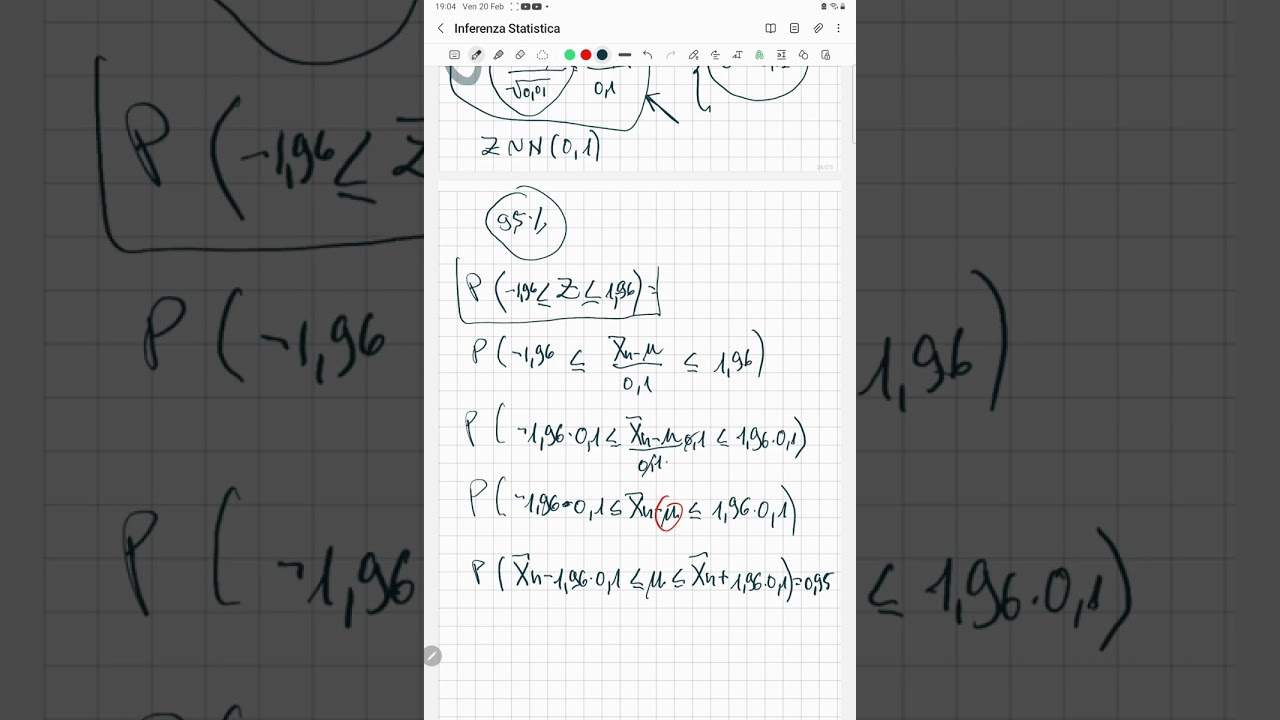 19:04 Ven 20 Feb
Inferenza Statistica
√0,01 0,1
Z ~ N(0,1)
24/25
95%
P(-1,96 ≤ Z ≤ 1,96) =
P(-1,96 ≤ (X̄n-μ)/0,1 ≤ 1,96)
P(-1,96·0,1 ≤ (X̄n-μ)/0,1·0,1 ≤ 1,96·0,1)
P(-1,96·0,1 ≤ X̄n-μ ≤ 1,96·0,1)
P(X̄n-1,96·0,1 ≤ μ ≤ X̄n+1,96·0,1)=0,95